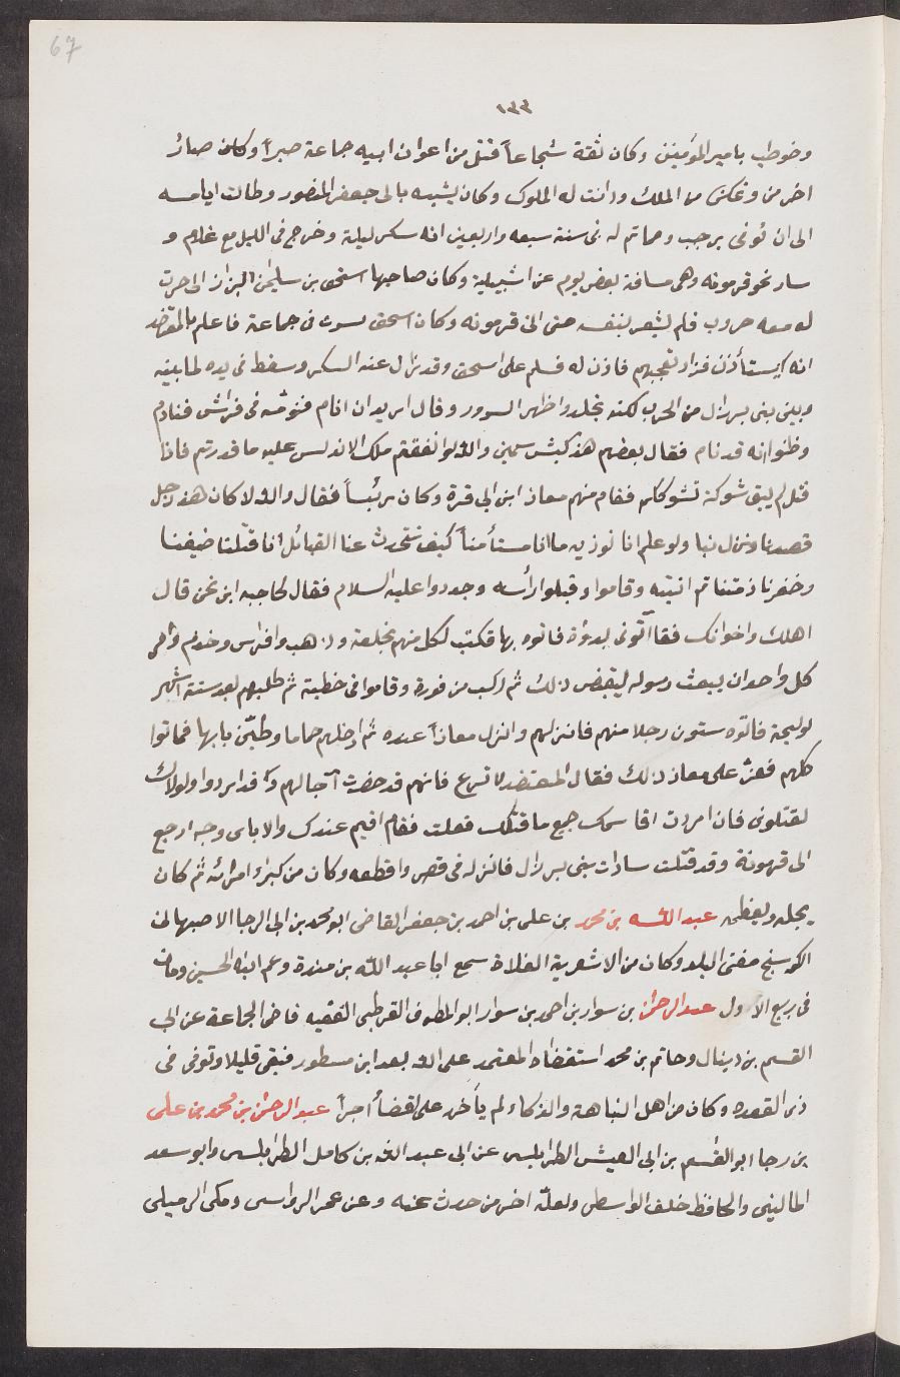 67
١٣٣
وخوطب بامير المؤمنين وكان ثقة شجاعاً قتل من اعوان ابيه جماعة صبراً وكان صائر
اخر من وتمكن من الملك ودانت له الملوك وكان يشبه بابى جعفر المنصور وطالت ايامه
الى ان توفى برجب ومما تم له فى سنة سبعه واربعين انه سكر ليلة وخرج فى الليل مع غلام و
سار نحو قرمونه وهى مسافة بعض يوم عن اشبيلية وكان صاحبها اسحق بن سليمن البرزالى جرت
له معه حروب فلم يشعر بنفسه حتى اتى قرمونه وكان اسحق يسرب فى جماعة فاعلم بالمعتضد
انه يستأذن فزاد تعجبهم فاذن له فسلم على اسحق وقد نزال عنه السكر وسقط فى يده لما بينه
وبين بنى برزال من الحرب لكنه تجلد واظهر السرور وقال اريد ان انام فنومه فى فراش فتناوم
وظنوا انه قد نام فقال بعضهم هذا كبش سمين والله لو انفقتم ملك الاندلس عليه ما قدرتم فاذا
قتل لم يبق شوكة تشوككم فقام منهم معاذ ابن ابى قرة وكان رئيساً فقال والله لا كان هذا رجل
قصدنا ونزل بنا ولو علم انا نوذيه ما اتانا مستأمناً كيف تتحدث عنا القبائل انا قتلنا ضيفنا
وخفرنا ذمتنا ثم انتبه وقاموا وقبلوا رأسه وجددوا عليه السلام فقال لحاجبه اين نحن قال
اهلك واخوانك فقا آتونى بدوة فاتوه بها فكتب لكل منهم بخلعة وذهب وافراس وخدم وامر
كل واحد ان يبعث رسوله ليقبض ذلك ثم ركب من فورة وقاموا فى خطبة ثم طلبهم بعد ستة اشهر
لوليمة فاتوه ستون رجلا منهم فانزلهم وانزل معاذاً عنده ثم ادخلهم حماما وطيّن بابها فماتوا
كلهم فعز على معاذ ذلك فقال المعتضد لا ترع فانهم قد حضرت آجالهم و قد ارادوا ولولاك
لقتلونى فان اردت اقاسمك جميع ما قتلك فعلت فقام اقيم عندك والا باى وجه ارجع
الى قرمونة وقد قتلت سادات بنى برزال فانزله فى قصر واقطعه وكان من كبراء امرائه ثم كان
يجله ويعظمه عبد الله بن محمد بن على بن احمد بن جعفر القاضى ابو محمد بن ابى الرجا الاصبهانى
الكوسج مفتى البلد وكان من الاشعرية الغلاة سمع ابا عبد الله بن مندة وعم ابيه الحسين ومات
فى ربيع الاول عبد الرحمن بن سوار بن احمد بن سوار ابو المطرف القرطبى الفقيه قاضى الجماعة عن ابى
القسم بن دينال وحاتم بن محمد استقضاه المعتمد على الله بعد ابن منظور فبقى قليلا وتوفى فى
ذى القعده وكان من اهل النباهة والذكاء لم يأخذ على القضاء اجراً عبد الرحمن بن محمد بن على
بن رجا ابو القسم بن ابى العيش الطرابلسى عن ابى عبد الله بن كامل الطرابلسى وابو سعد
المالينى والحافظ خلف الواسطى ولعله اخر من حدث عنه وعن عمر الرواسى ومكى الرميلى